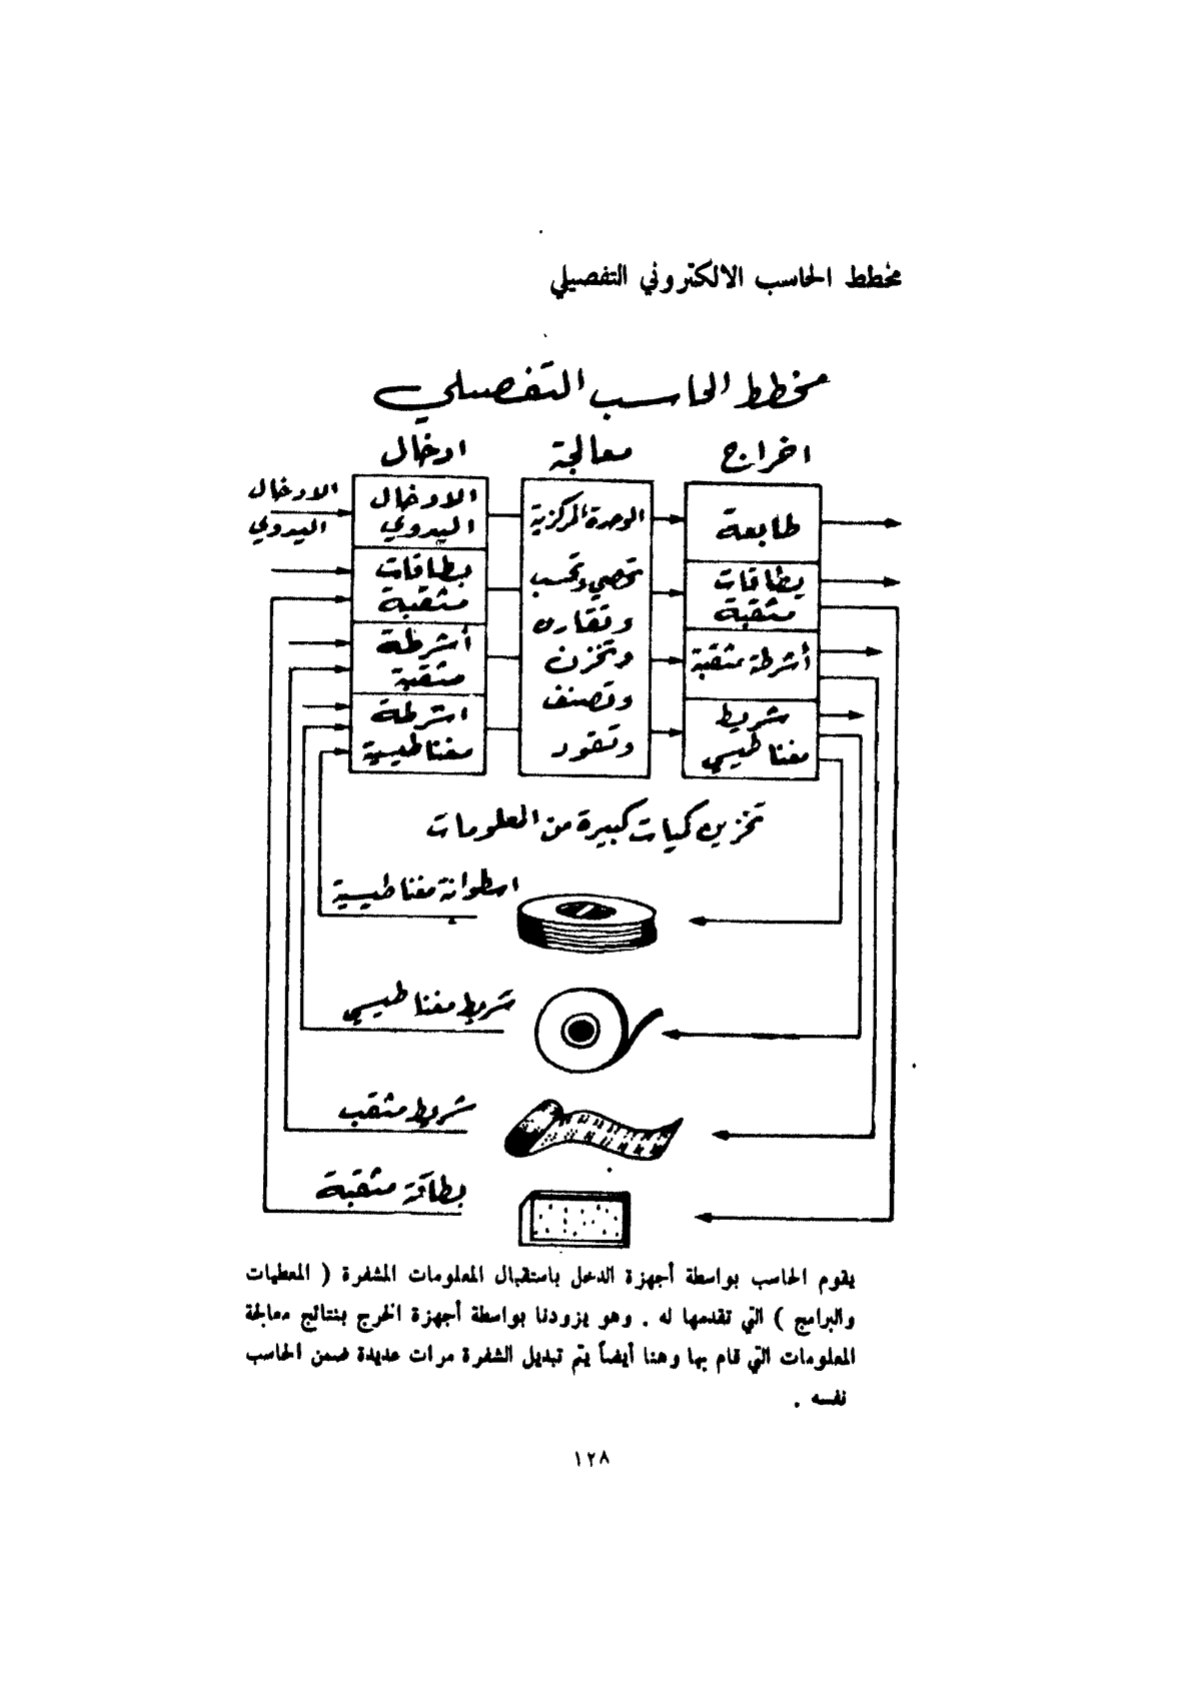 مخطط الحاسب الالكتروني التفصيلي
مخطط الحاسب التفصيلي
اخراج
معالجة
ادخال
طابعة
بطاقات
مثقبة
أشرطة مثقبة
شريط
مغناطيسي
الوحدة المركزية
تحصي وتحسب
وتقارن
وتخزن
وتصنف
وتقود
الادخال
اليدوي
بطاقات
مثقبة
أشرطة
مثقبة
اشرطة
مغناطيسية
الادخال
اليدوي
تخزين كميات كبيرة من المعلومات
اسطوانة مغناطيسية
شريط مغناطيسي
شريط مثقب
بطاقة مثقبة
يقوم الحاسب بواسطة أجهزة الدخل باستقبال المعلومات المشفرة ( المعطيات
والبرامج ) التي تقدمها له . وهو يزودنا بواسطة أجهزة الخرج بنتائج معالجة
المعلومات التي قام بها وهنا أيضاً يتم تبديل الشفرة مرات عديدة ضمن الحاسب
نفسه .
١٢٨